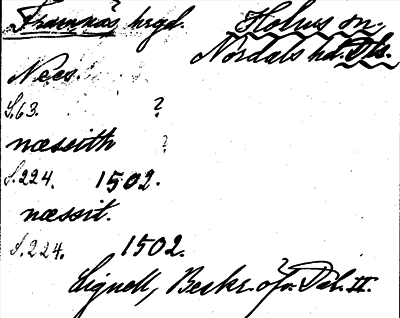 Framnäs hrgd. Holms sn.
Nordals hd. Dls.
Nees.
S. 63. ?
næssith ?
S. 224. 1502.
næssit.
S. 224. 1502.
Lignell, Beskr. öfv. Dal. II.